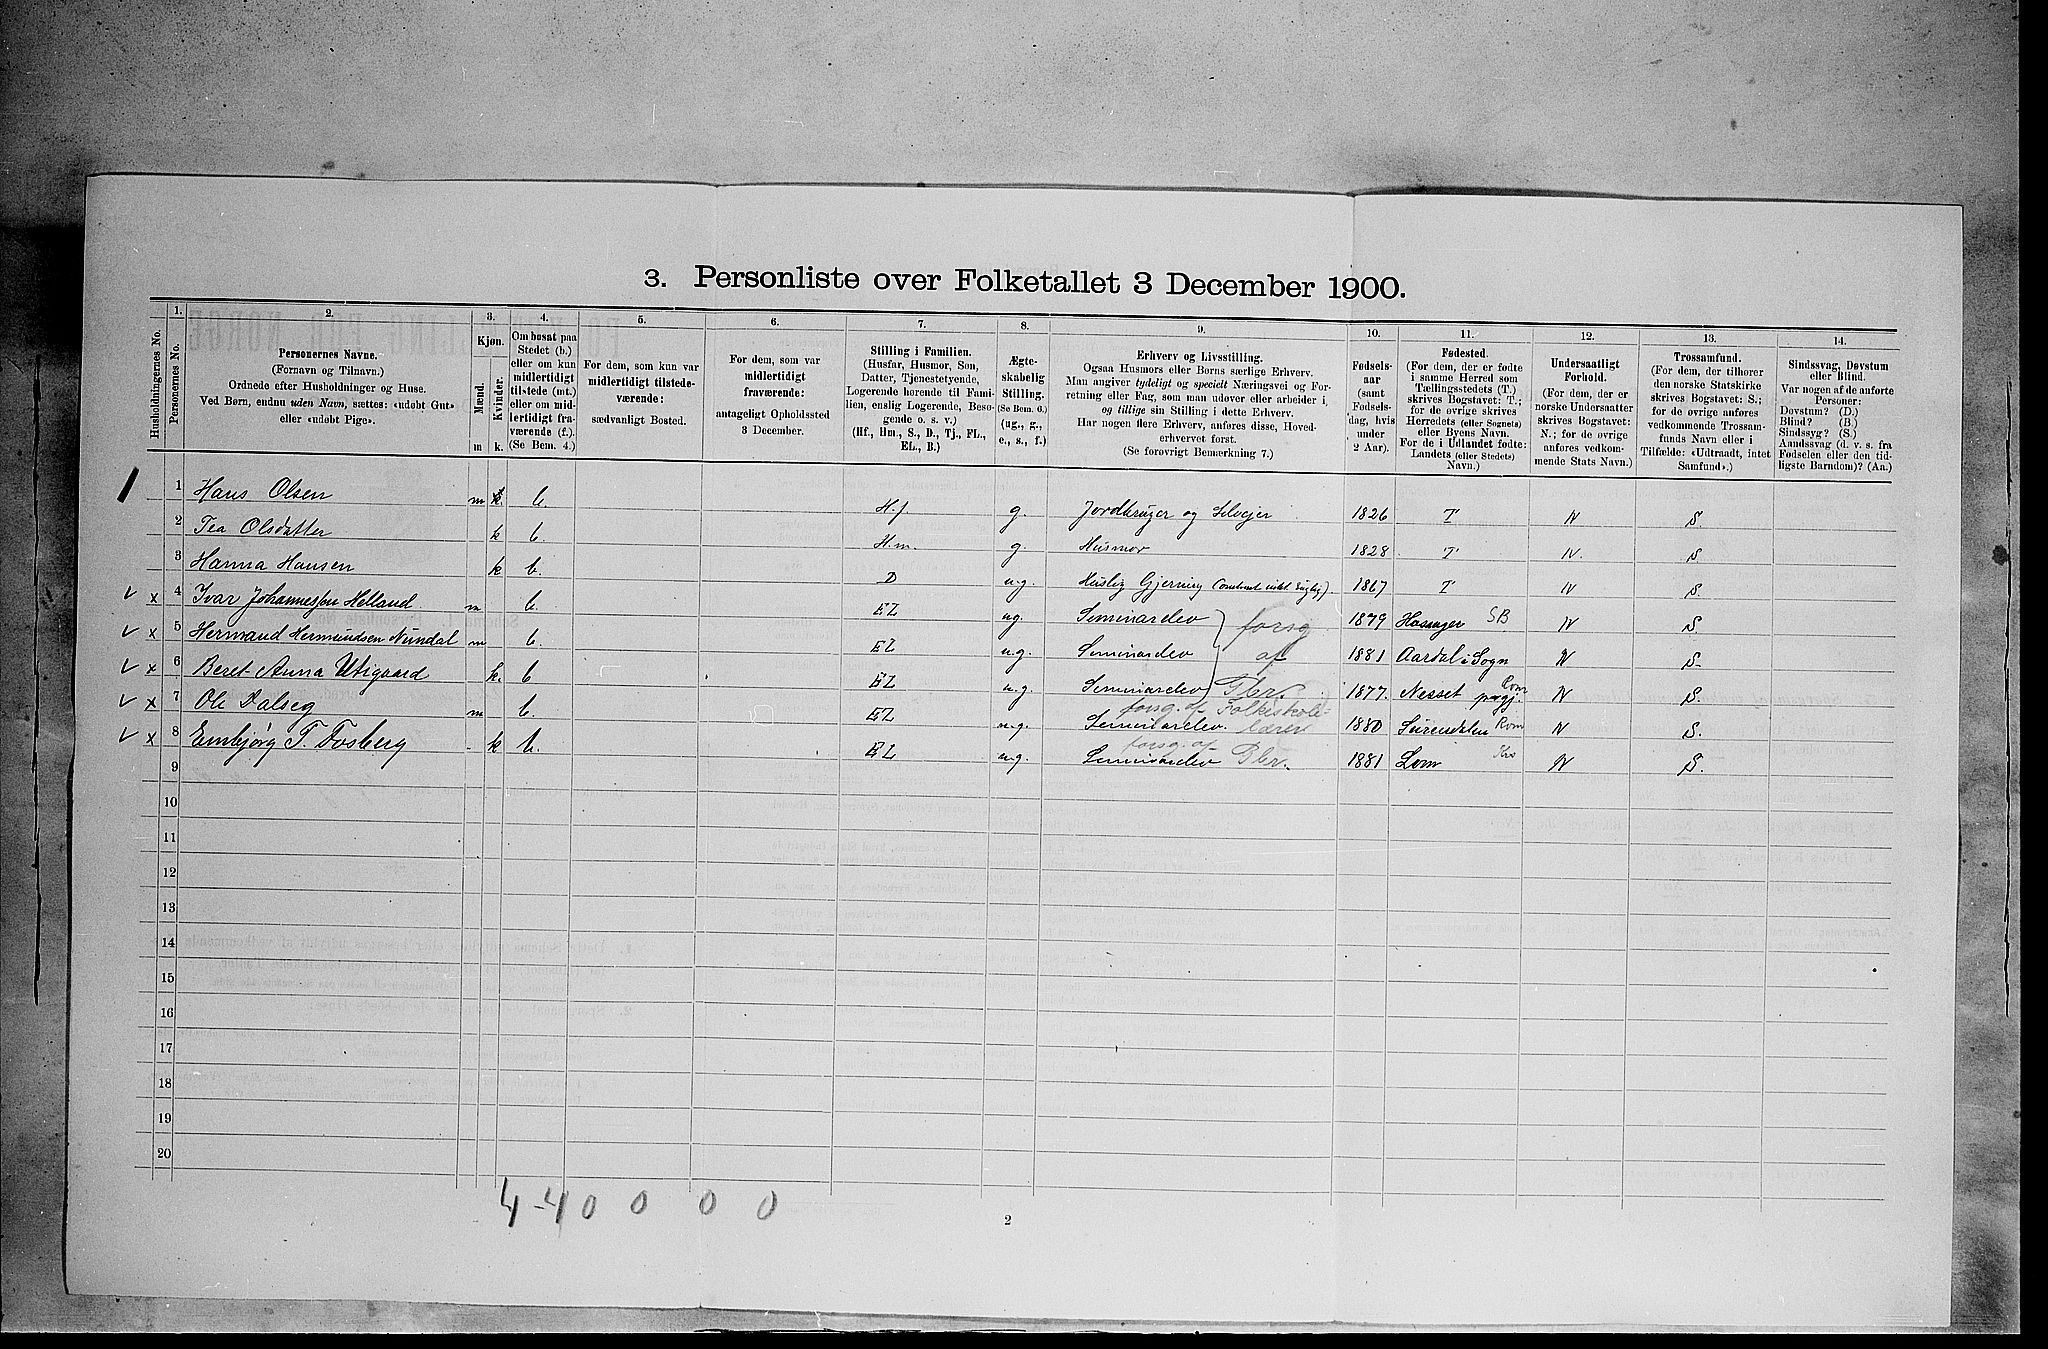 3. Personliste over Folketallet 3 December 1900.
Husholdningernes No.
1.
Personernes No.
2.
Personernes Navne.
(Fornavn og Tilnavn.)
Ordnede efter Husholdninger og Huse.
Ved Børn, endnu uden Navn, sættes: «udøbt Gut»
eller «udøbt Pige».
3.
Kjøn.
Mænd.
Kvinder.
m
k.
4.
Om bosat paa
Stedet (b.)
eller om kun
midlertidigt
tilstede (mt.)
eller om mid-
lertidigt fra-
værende (f.).
(Se Bem. 4.)
5.
For dem, som kun var
midlertidigt tilstede-
værende:
sædvanligt Bosted.
6.
For dem, som var
midlertidigt
fraværende:
antageligt Opholdssted
3 December.
7.
Stilling i Familien.
(Husfar, Husmor, Søn,
Datter, Tjenestetyende,
Logerende hørende til Fami-
lien, enslig Logerende, Besø-
gende o. s. v.)
(Hf., Hm., S., D., Tj., FL.,
EL., B.)
8.
Ægte-
skabelig
Stilling.
(Se Bem. 6.)
(ug., g.,
e., s., f.)
9.
Erhverv og Livsstilling.
Ogsaa Husmors eller Børns særlige Erhverv.
Man angiver tydeligt og specielt Næringsvei og For-
retning eller Fag, som man udøver eller arbeider i,
og tillige sin Stilling i dette Erhverv.
Har nogen flere Erhverv, anføres disse, Hoved-
erhvervet først.
(Se forøvrigt Bemærkning 7.)
10.
Fødsels-
aar
(samt
Fødsels-
dag, hvis
under
2 Aar).
11.
Fødested.
(For dem, der er fødte
i samme Herred som
Tællingsstedets (T.)
skrives Bogstavet: T.;
for de øvrige skrives
Herredets (eller Sognets)
eller Byens Navn.
For de i Udlandet fødte:
Landets (eller Stedets)
Navn.)
12.
Undersaatligt
Forhold.
(For dem, der er
norske Undersaatter
skrives Bogstavet:
N.; for de øvrige
anføres vedkom-
mende Stats Navn.)
13.
Trossamfund.
(For dem, der tilhører
den norske Statskirke
skrives Bogstavet: S.;
for de øvrige anføres
vedkommende Trossam-
funds Navn eller i
Tilfælde: «Udtraadt, intet
Samfund».)
14.
Sindssvag, Døvstum
eller Blind.
Var nogen af de anførte
Personer:
Døvstum? (D.)
Blind? (B.)
Sindssyg? (S.)
Aandssvag (d. v. s. fra
Fødselen eller den tid-
ligste Barndom)? (Aa.)
1 1 Hans Olsen m k. b. H.f g. Jordbruger og Selveier 1826 T N S.
2 Tea Olsdatter k b. H.m. g. Husmor 1828 T N. S
3 Hanna Hansen k b. D u.g. Huslig Gjerning 1867 T N S.
x 4 Ivar Johannessen Helland. m b. EL ug. Seminarelev 1879 SB N S.
x 5 Hermand Hermundsen Nundal m b. EL u.g. Seminarelev 1881 Aardal i Sogn N S.
forsg
af
x 6 Beret-Anna Utigaard k. b EL u.g. Seminarelev 1877. Nesset prgj. Rom N S.
forsg. af Folkeskole-
x 7 Ole Dalseg m b. EL u.g. Seminarelev. lærer 1880 Surendalen Rom N S.
forsg. af
x 8 Embjørg T. Fosberg k b. EL u.g. Seminarelev 1881 Lom Kra N S.
9
10
11
12
13
14
15
16
17
18
19
20
4-4 0 0 0 0
2